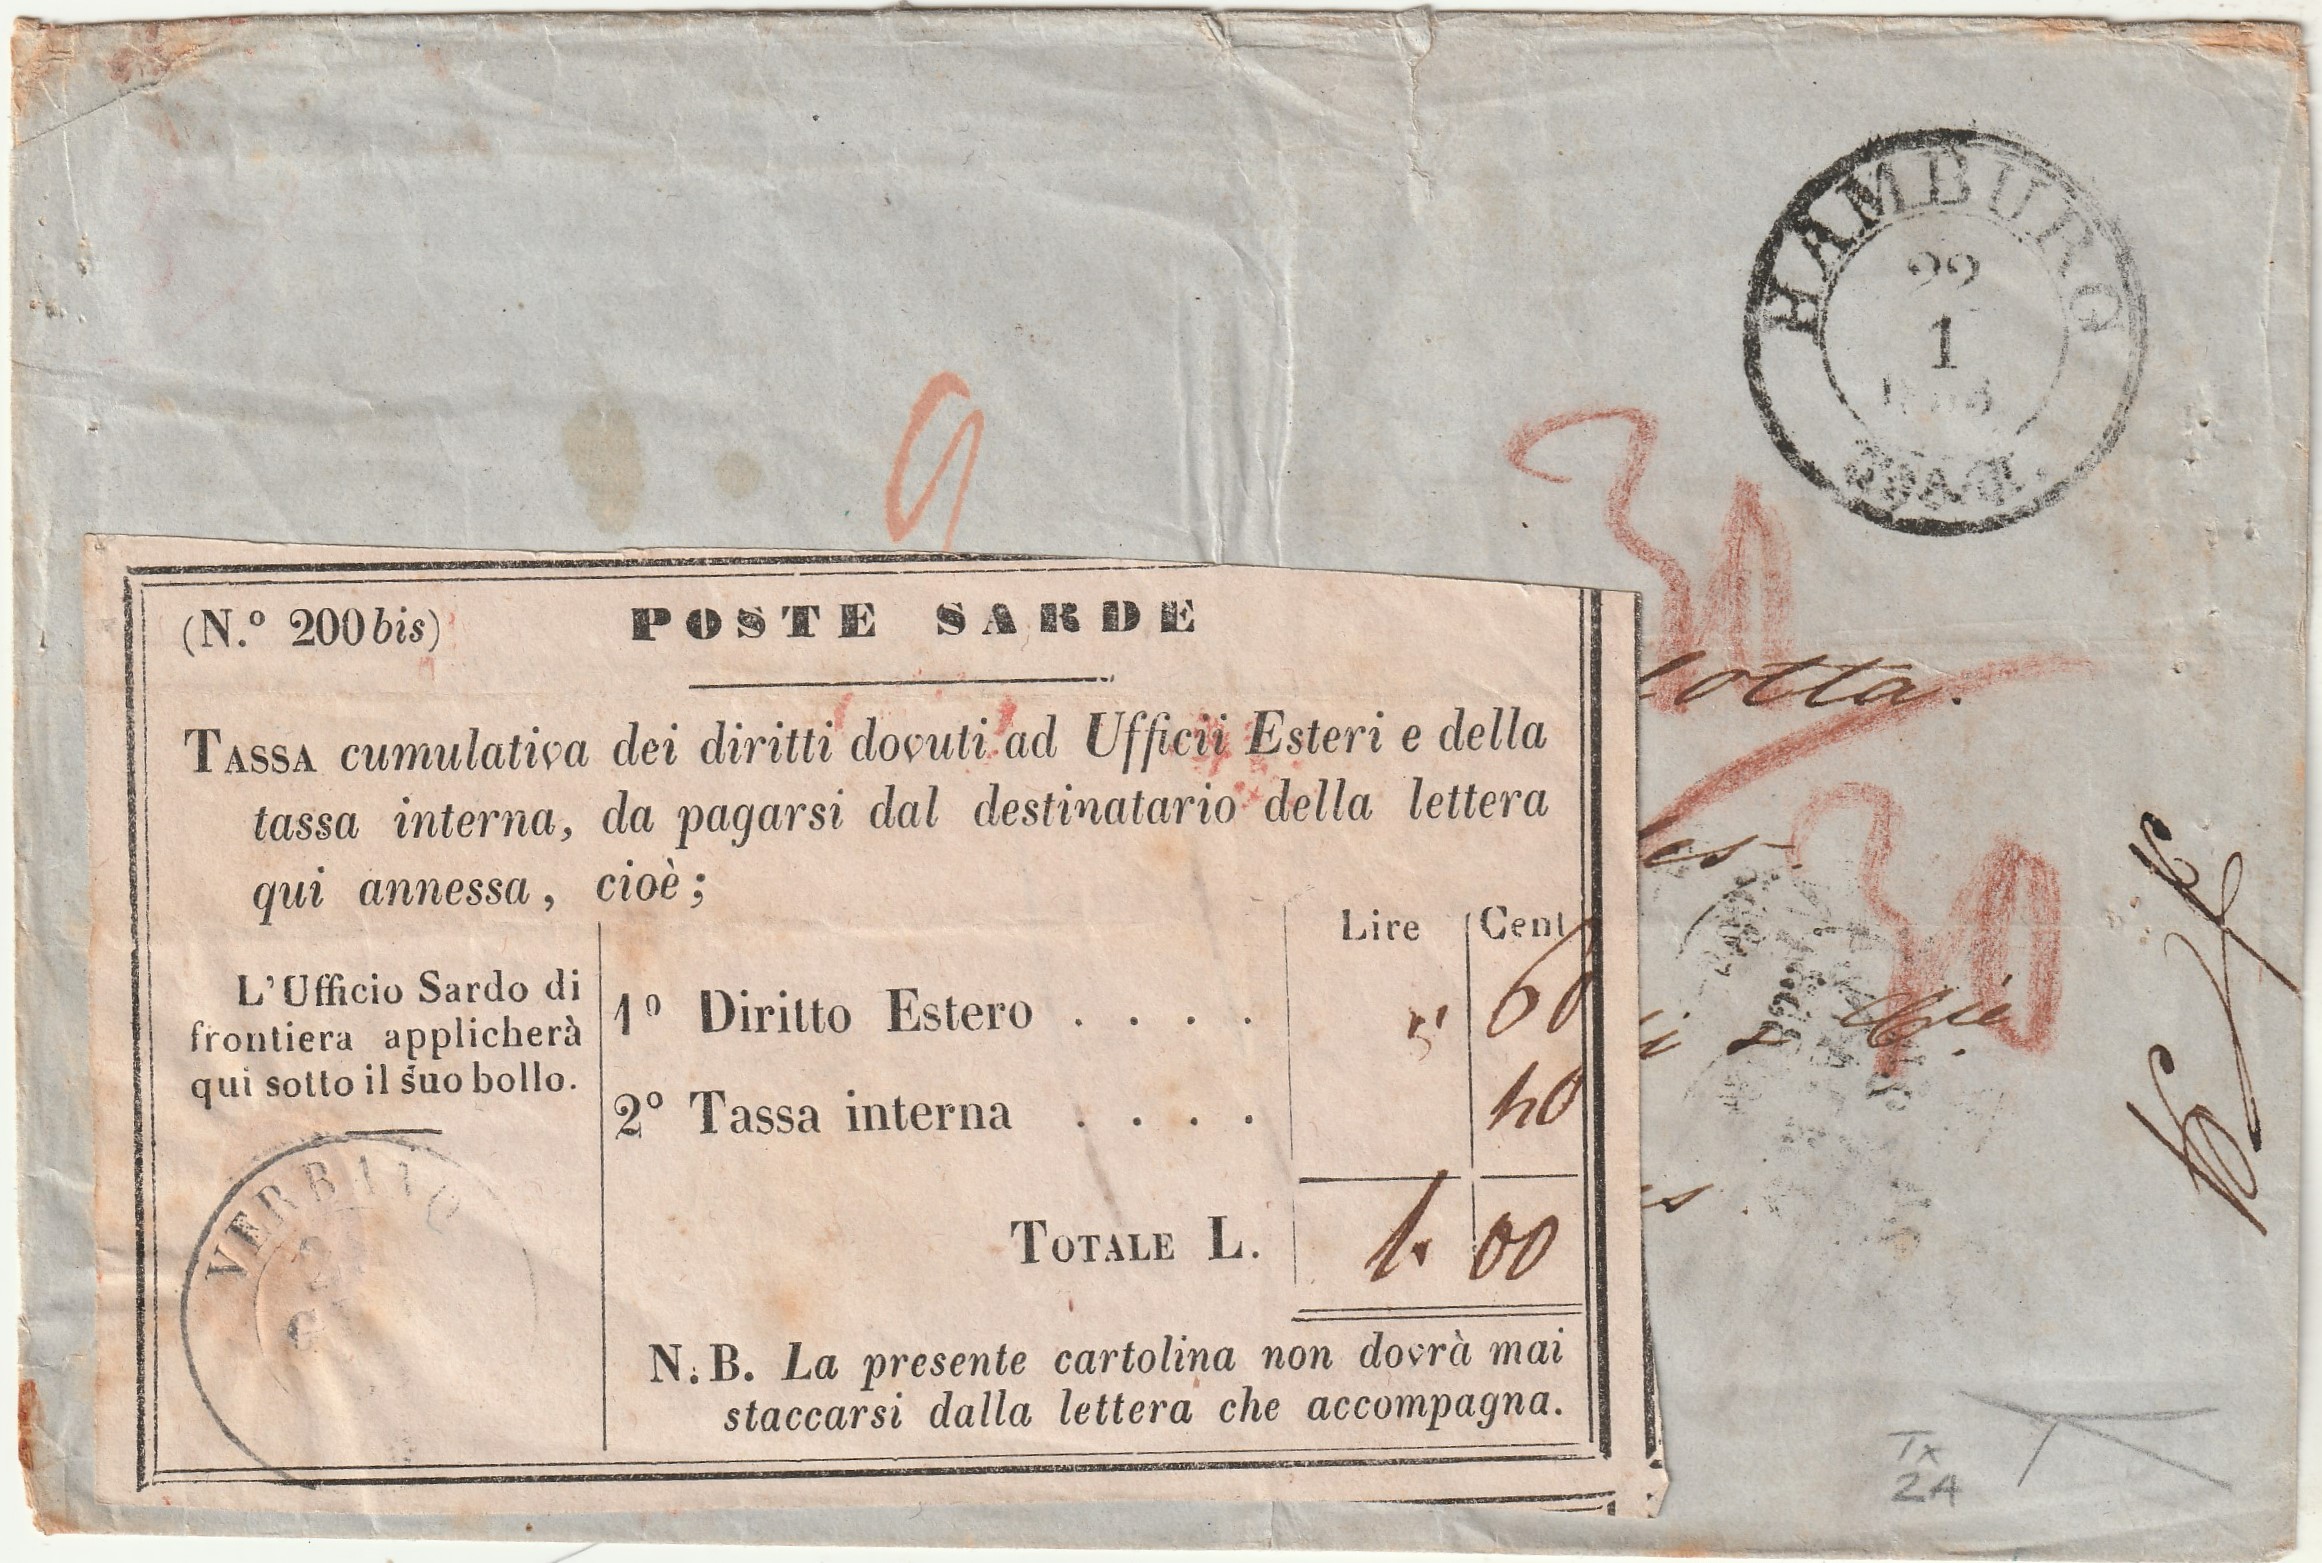 HAMBURG
22
1
9
30
(N.º 200 bis)
POSTE SARDE
TASSA cumulativa dei diritti dovuti ad Ufficii Esteri e della
tassa interna, da pagarsi dal destinatario della lettera
qui annessa, cioè;
Lire Cent
L'Ufficio Sardo di
frontiera applicherà
qui sotto il suo bollo.
1º Diritto Estero . . . . 60
2º Tassa interna . . . . 40
TOTALE L. 1. 00
N. B. La presente cartolina non dovrà mai
staccarsi dalla lettera che accompagna.
VERBANO
30
Tx
2A